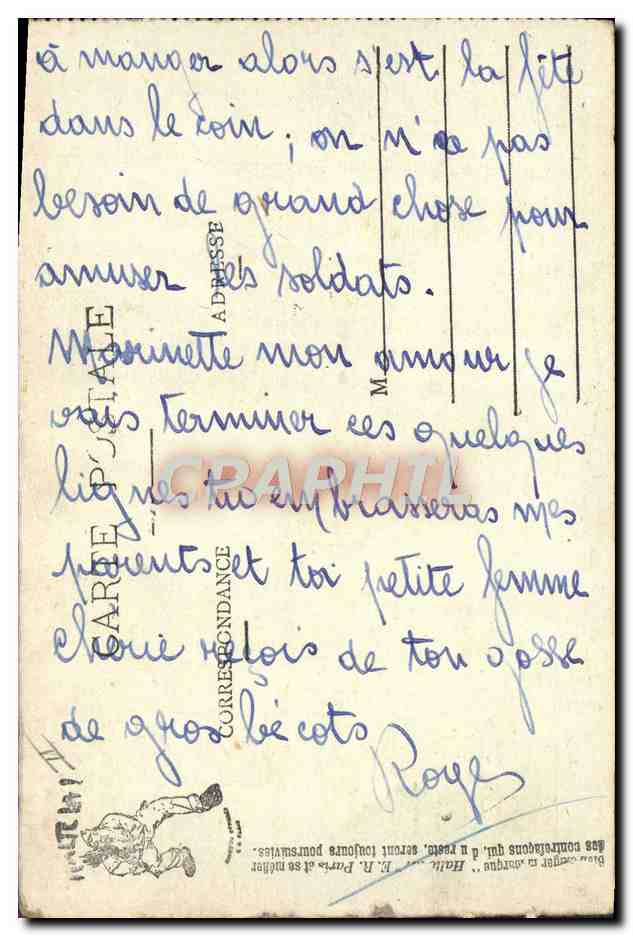 à manger alors s'est la fête
dans le coin ; on n'a pas
besoin de grand chose pour
amuser les soldats.
Marinette mon amour je
vais terminer ces quelques
lignes tu embrasseras mes
parents et toi petite femme
cherie reçois de ton gosse
de gros bécots
Roger
CARTE POSTALE
CORRESPONDANCE
ADRESSE
M
CPARPHIL
Bien exiger la marque "Halte là!" E. R. Paris et se méfier
des contrefaçons qui, du reste, seront toujours poursuivies.
HALTE LÀ!
II